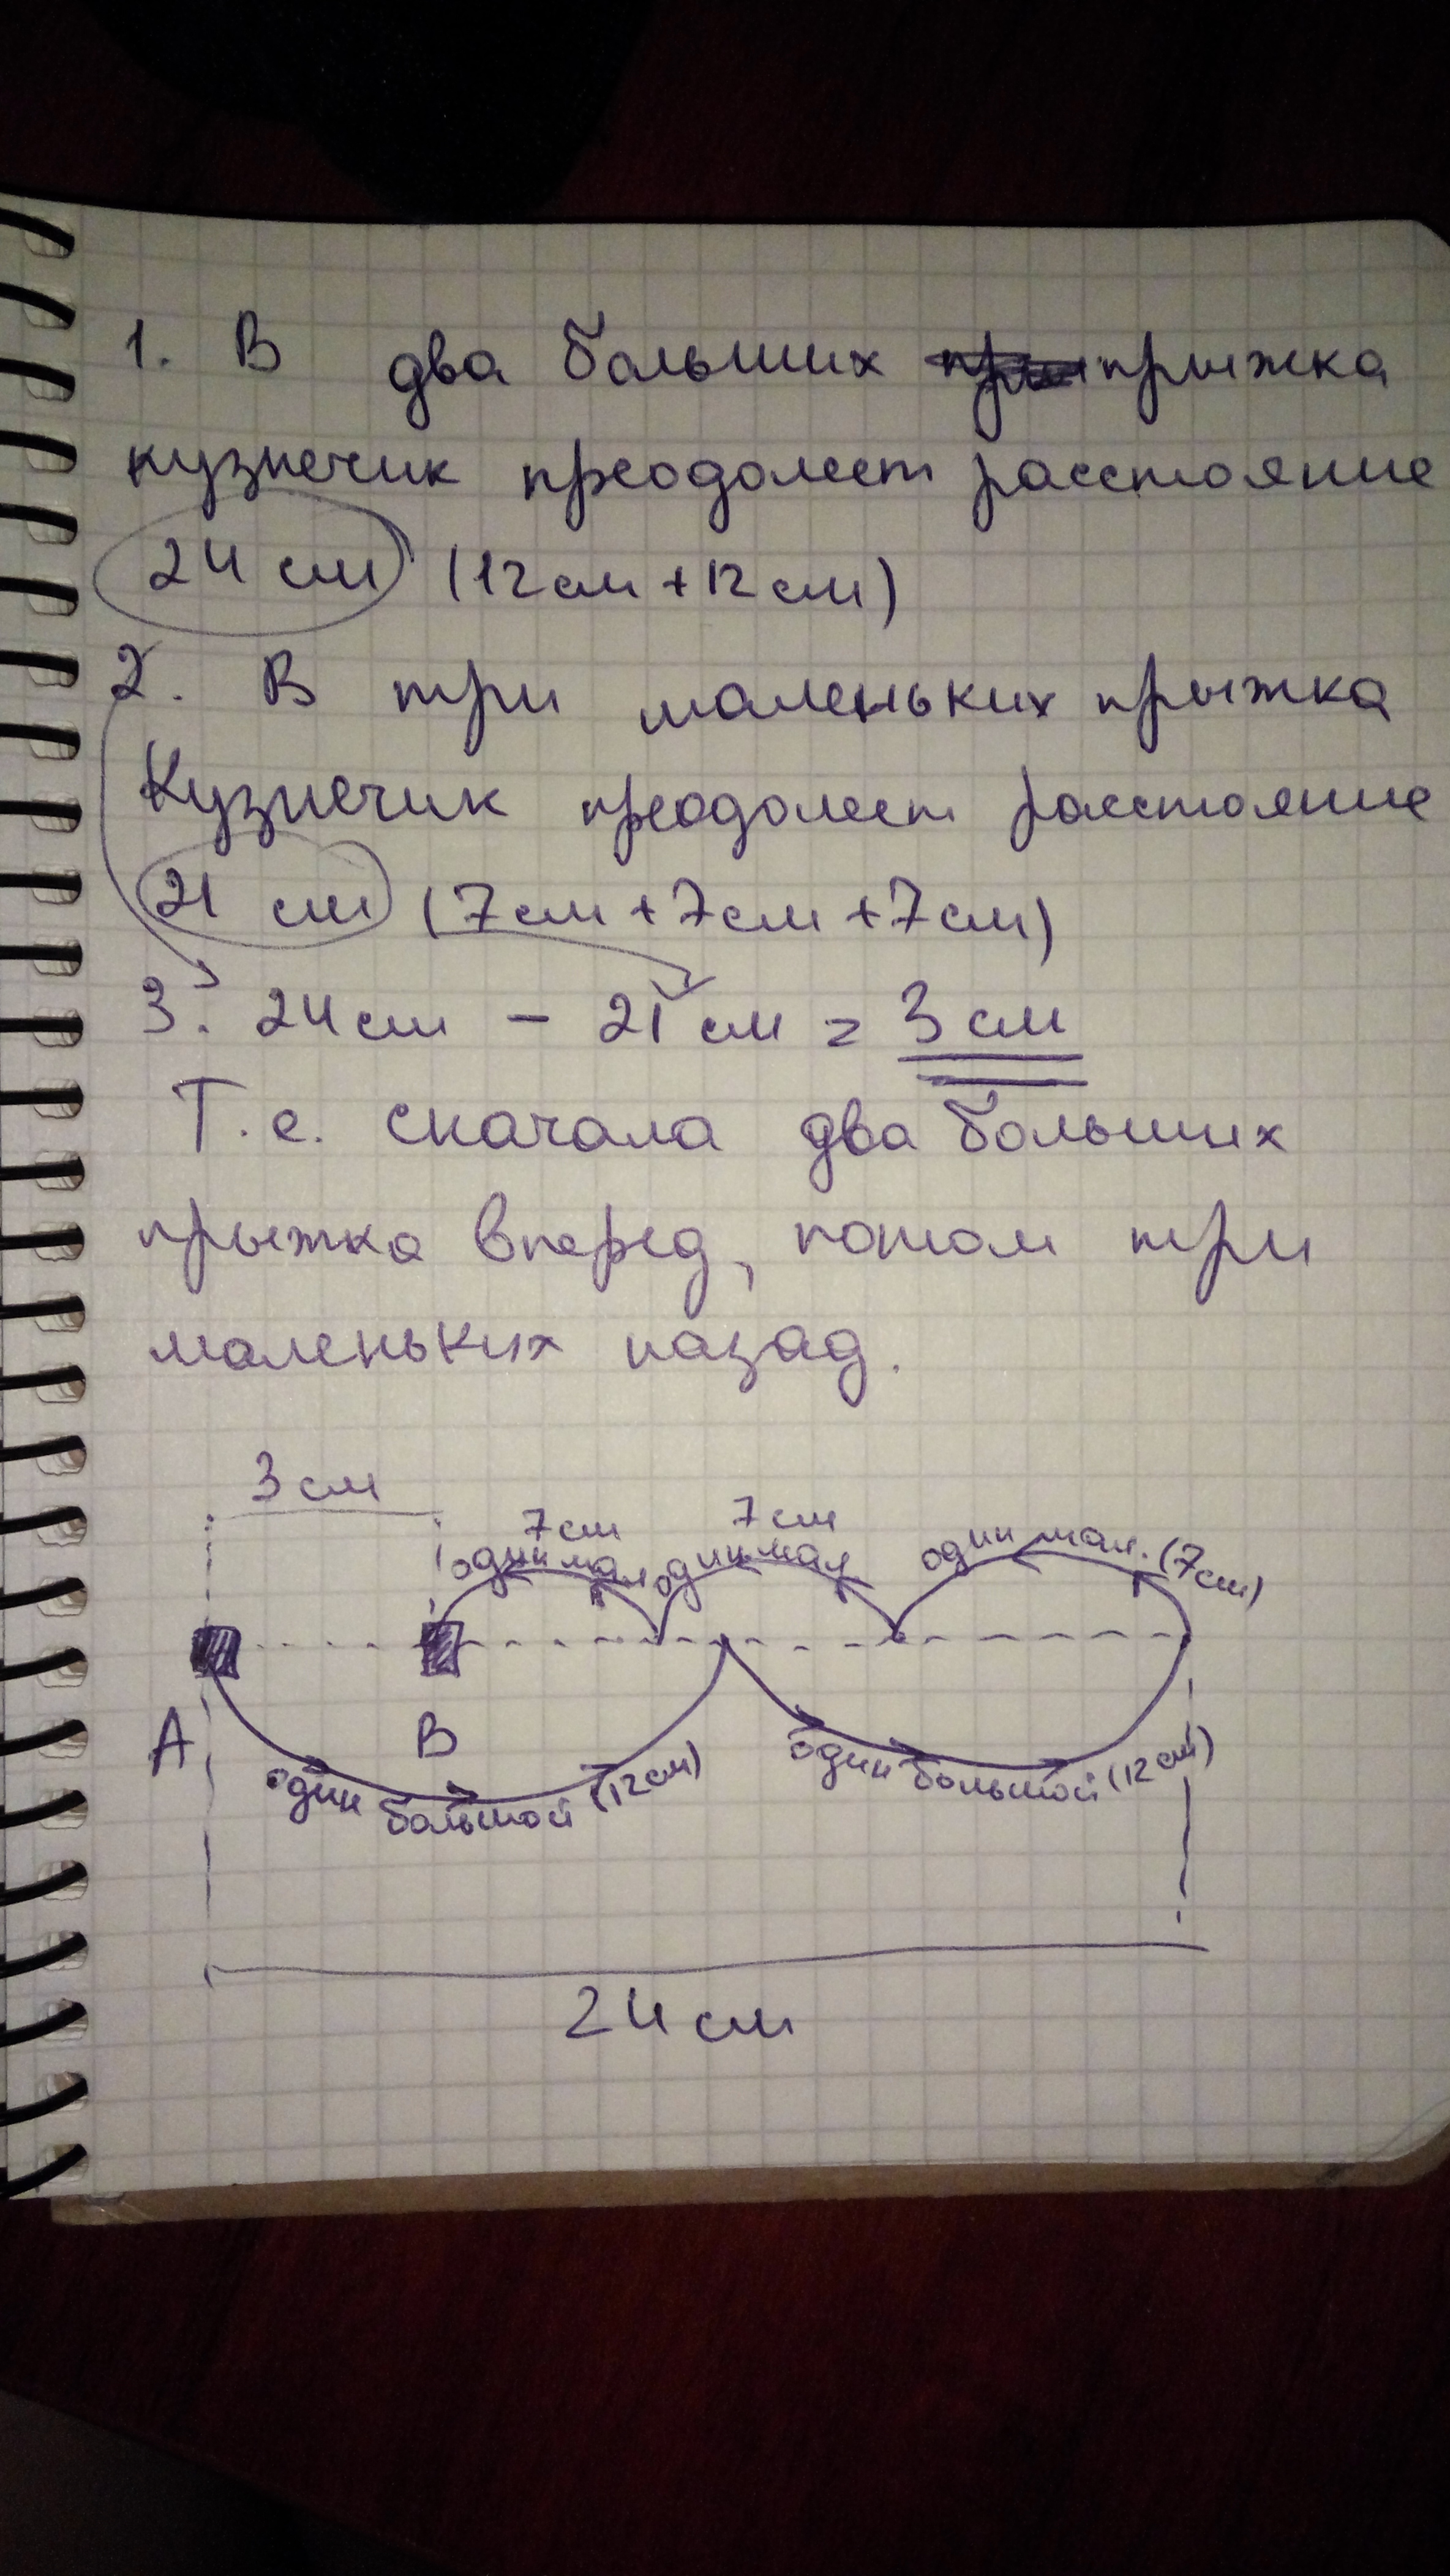 1. В два больших прыжка
кузнечик преодолеет расстояние
24 см (12см + 12см)
2. В три маленьких прыжка
Кузнечик преодолеет расстояние
21 см (7см + 7см + 7см)
3. 24см - 21см = 3см
Т.е. сначала два больших
прыжка вперед, потом три
маленьких назад.
3см
7см 7см
один мал один мал один мал. (7см)
А В
один большой (12см) один большой (12см)
24см